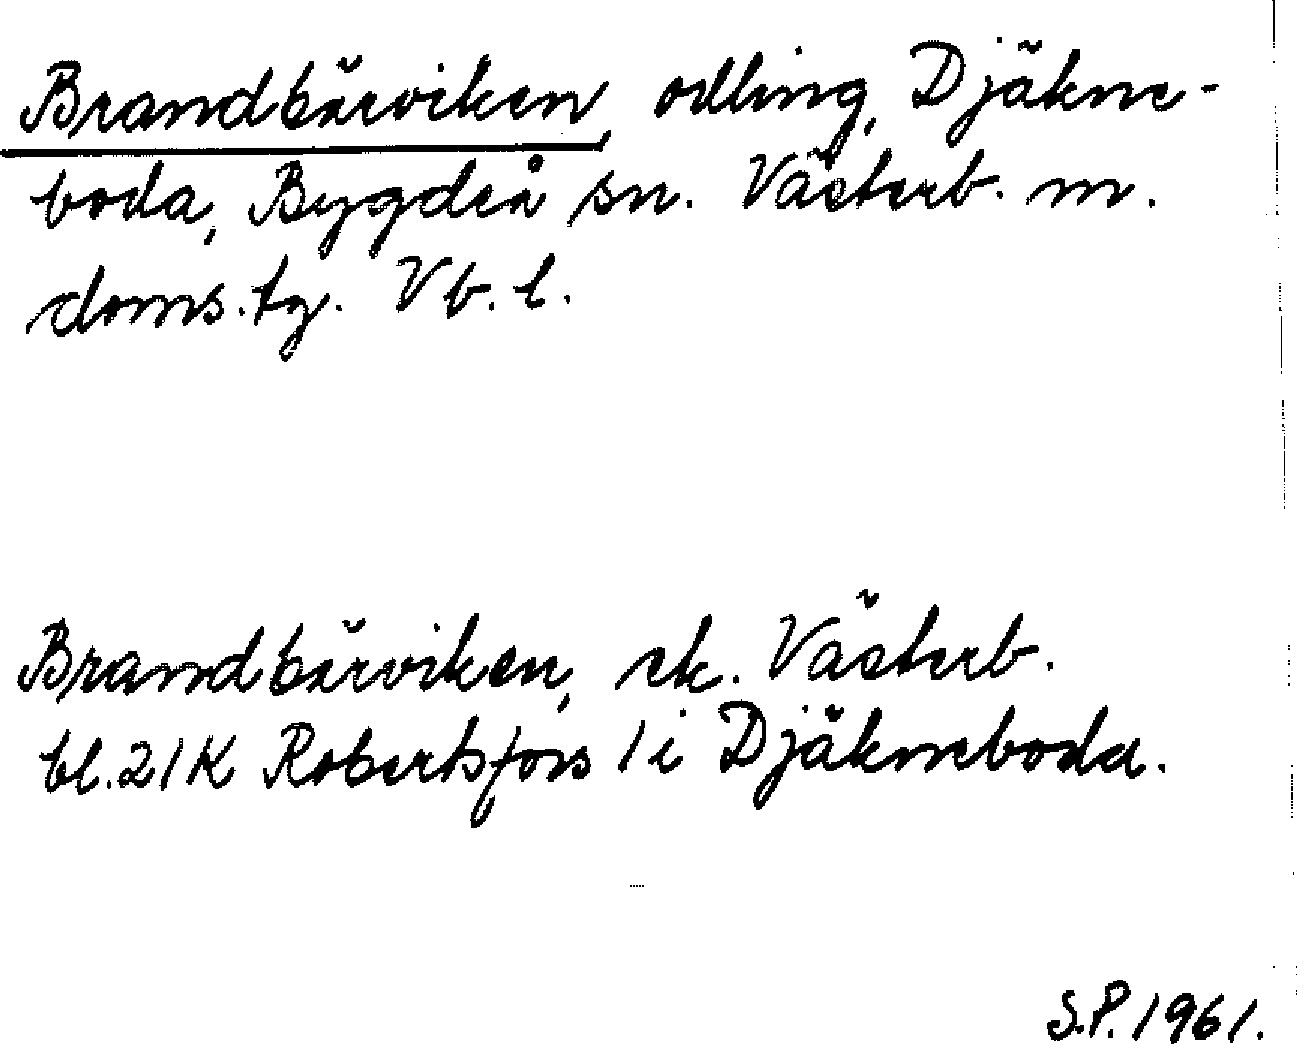 Brandbärviken, odling, Djäkne-
boda, Bygdeå sn. Västerb. m.
doms.tg. Vb. l.
Brandbärviken, ek. Västerb.
bl. 21K Robertsfors 1 i Djäkneboda.
S.P. 1961.